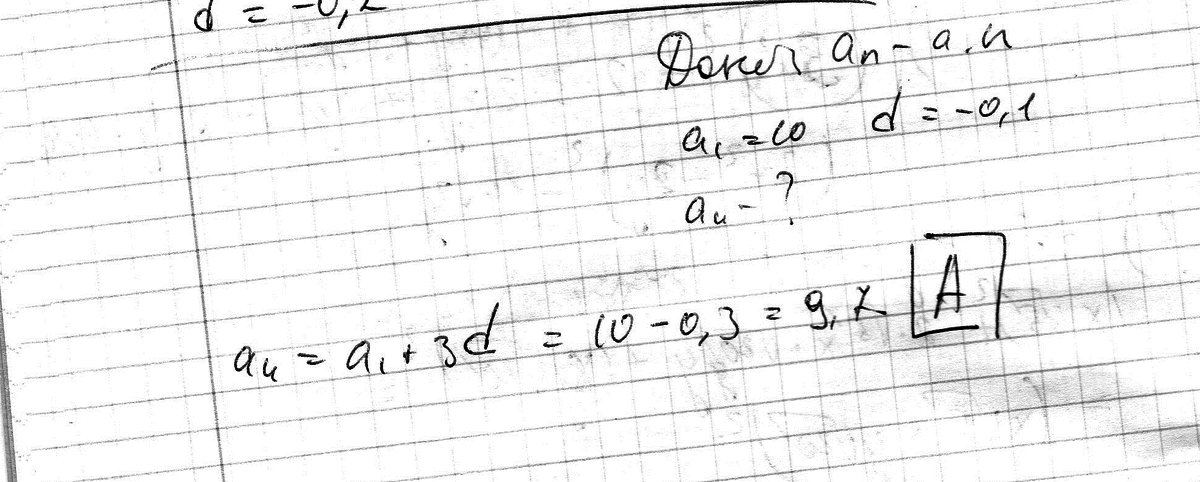 d = -0,2
aₙ - а.п
a₁ = 10 d = -0,1
a₄ - ?
a₄ = a₁ + 3d = 10 - 0,3 = 9,7 A